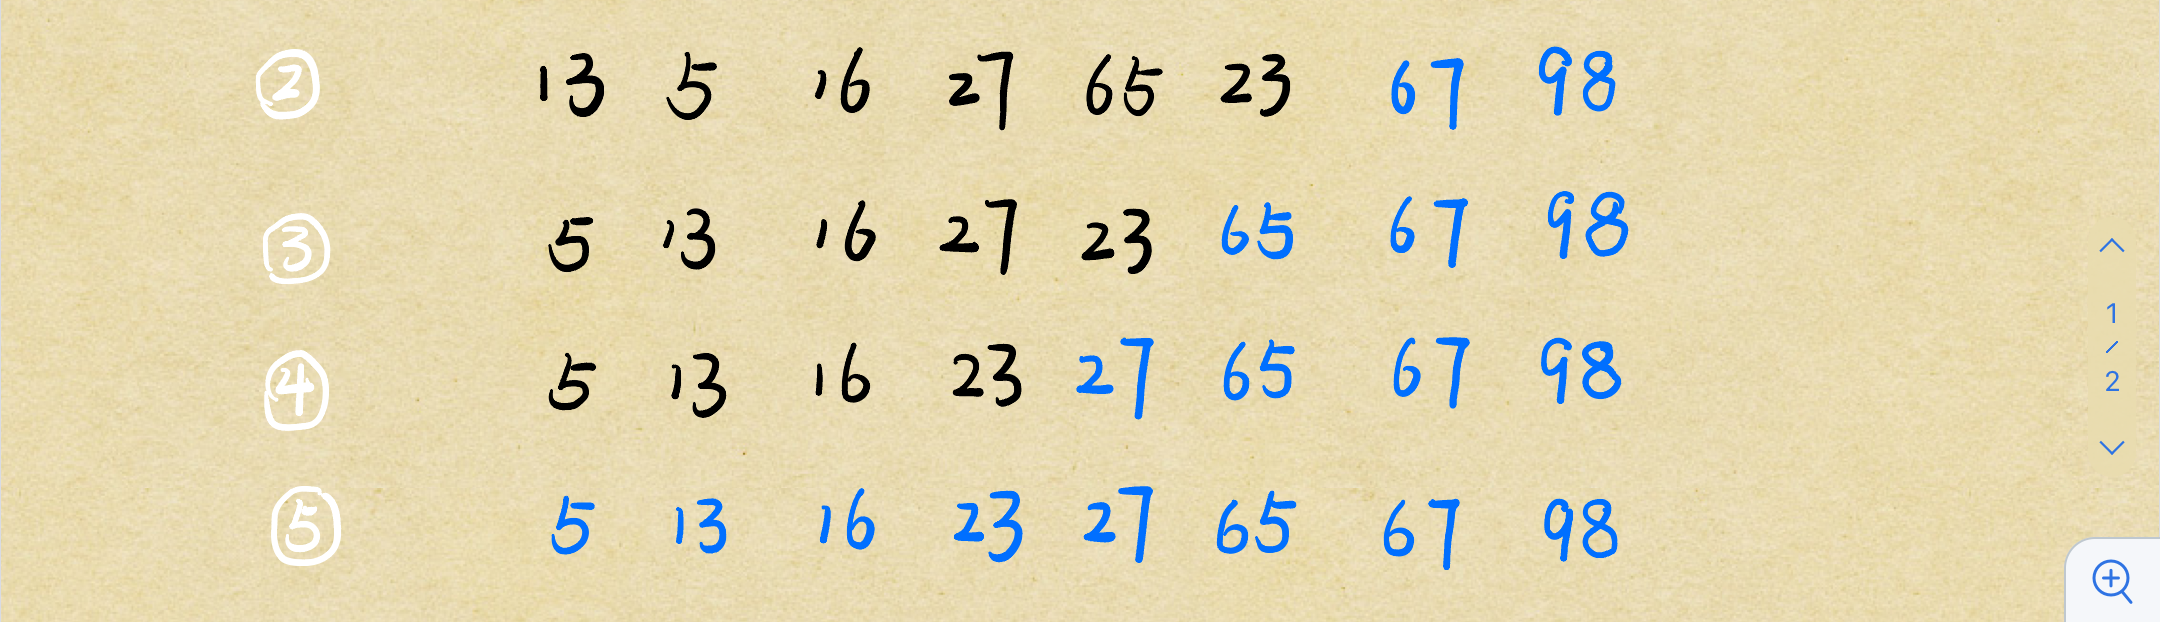 ② 13 5 16 27 65 23 67 98
③ 5 13 16 27 23 65 67 98
④ 5 13 16 23 27 65 67 98
⑤ 5 13 16 23 27 65 67 98
1
/
2